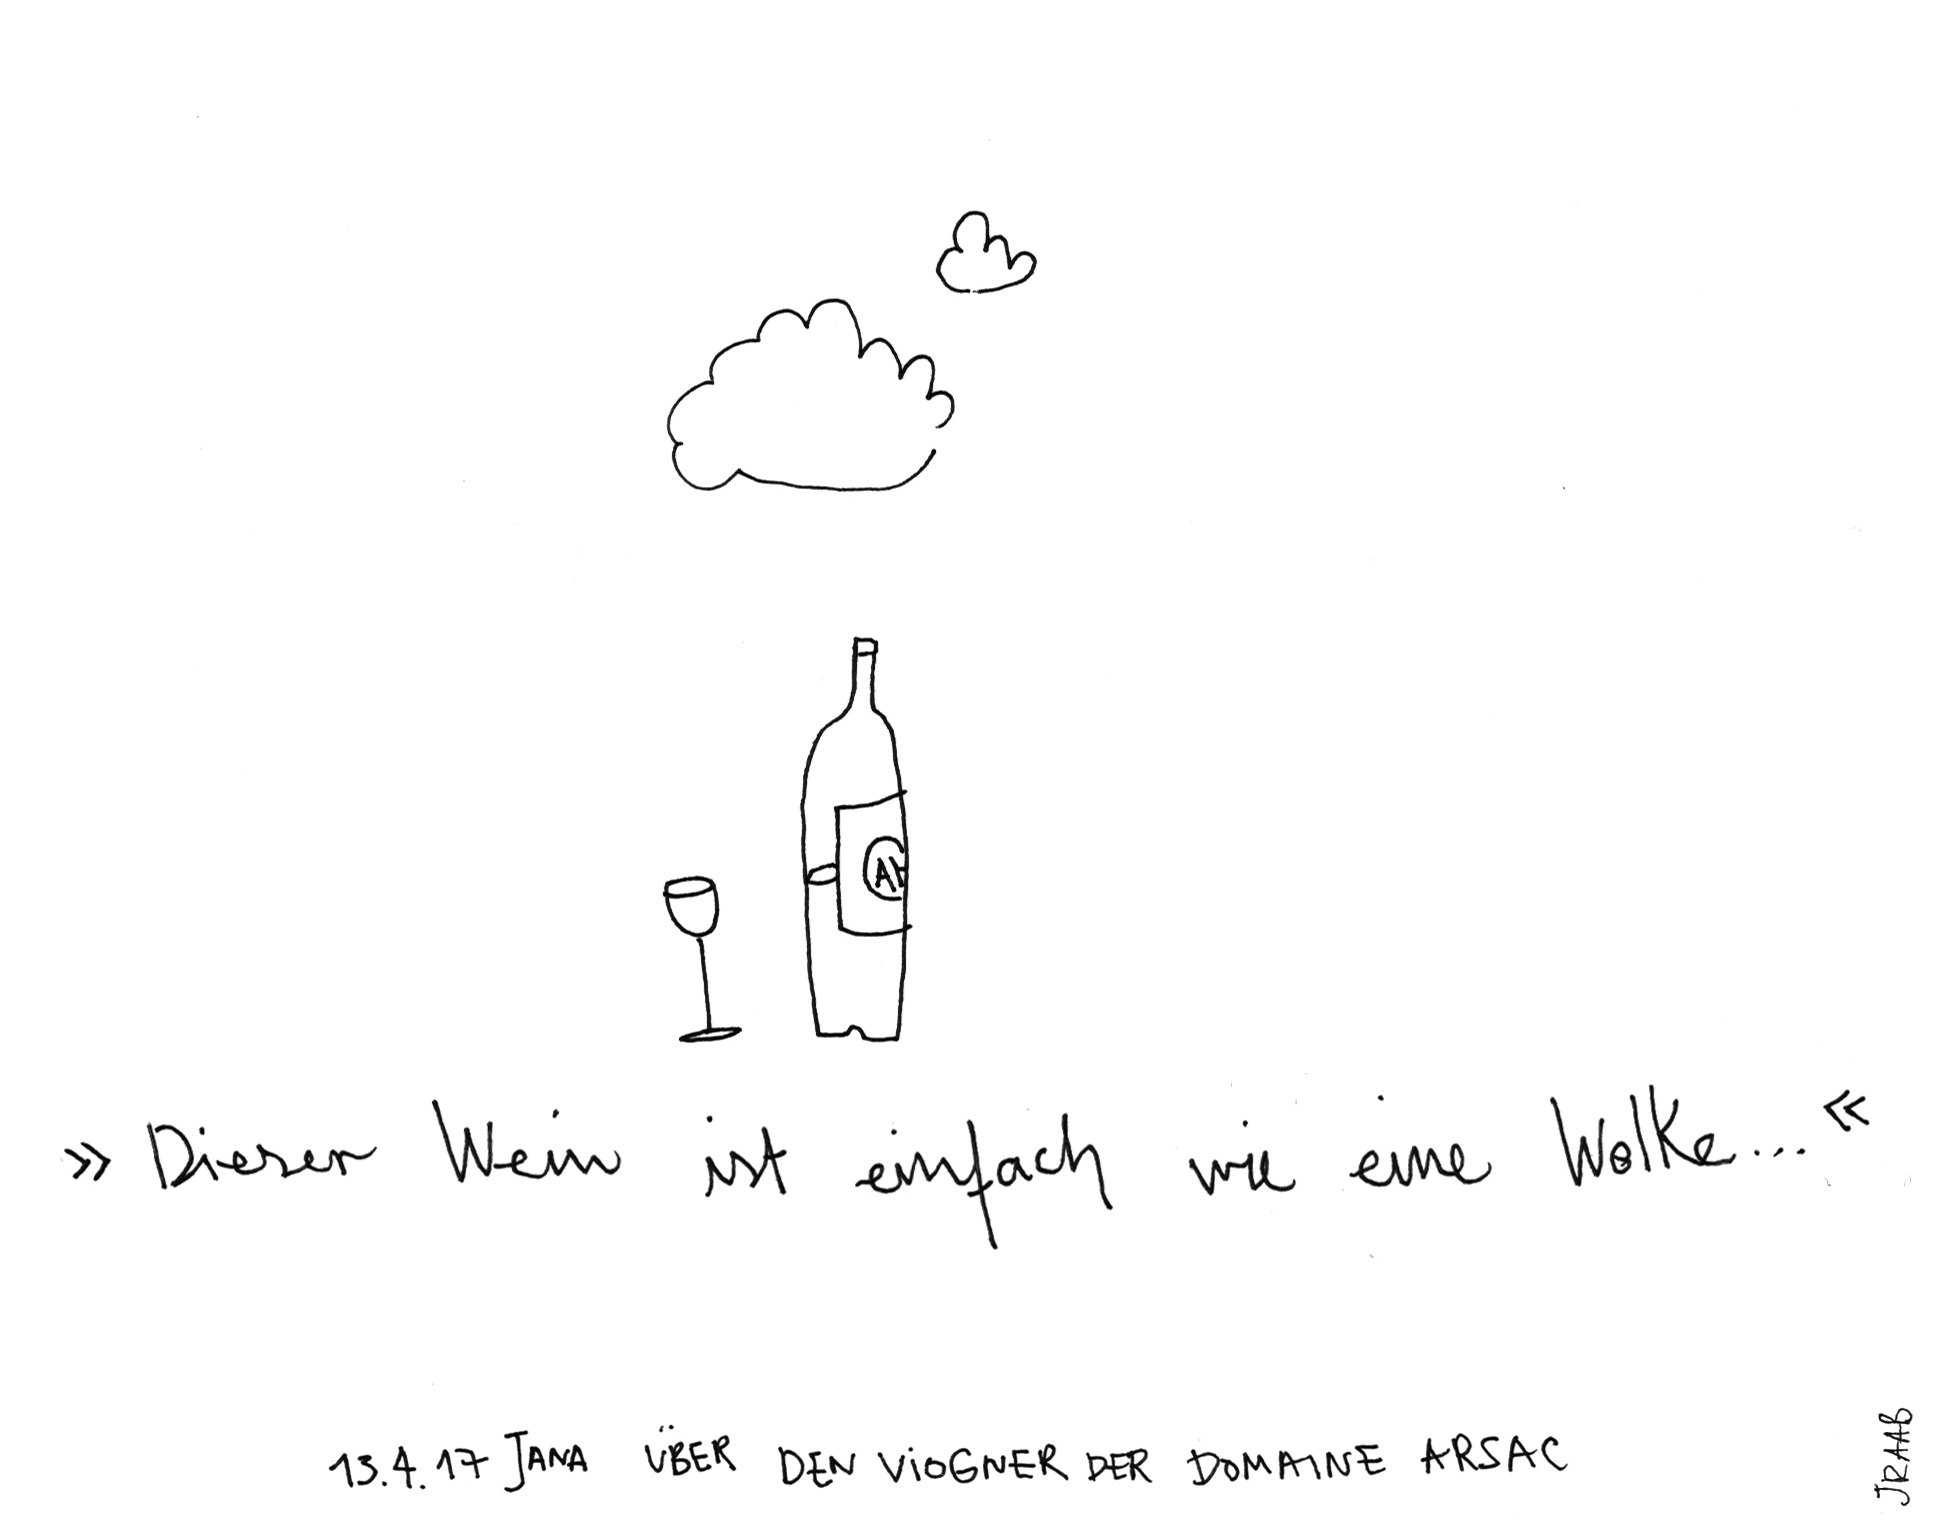 AH
»Dieser Wein ist einfach wie eine Wolke...«
13.4.17 JANA ÜBER DEN VIOGNER DER DOMAINE ARSAC
JRAAB